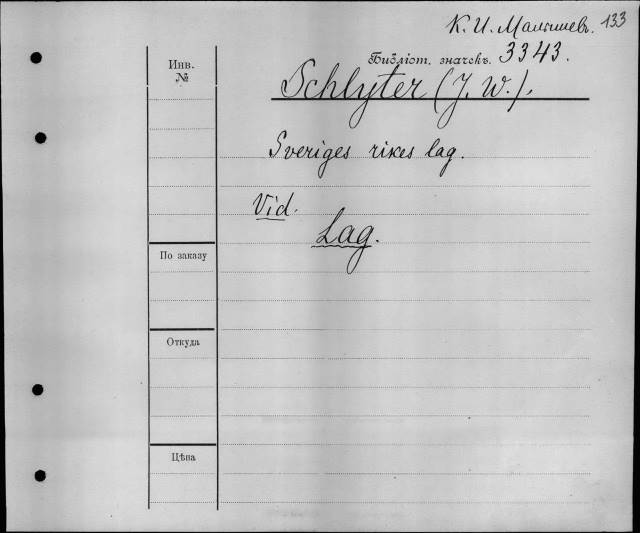 К. И. Малышевъ. 133
Библіот. значекъ. 3343.
Инв.
№
Schlyter (J. W.).
Sveriges rikes lag.
Vid.
Lag.
По заказу
Откуда
Цѣна